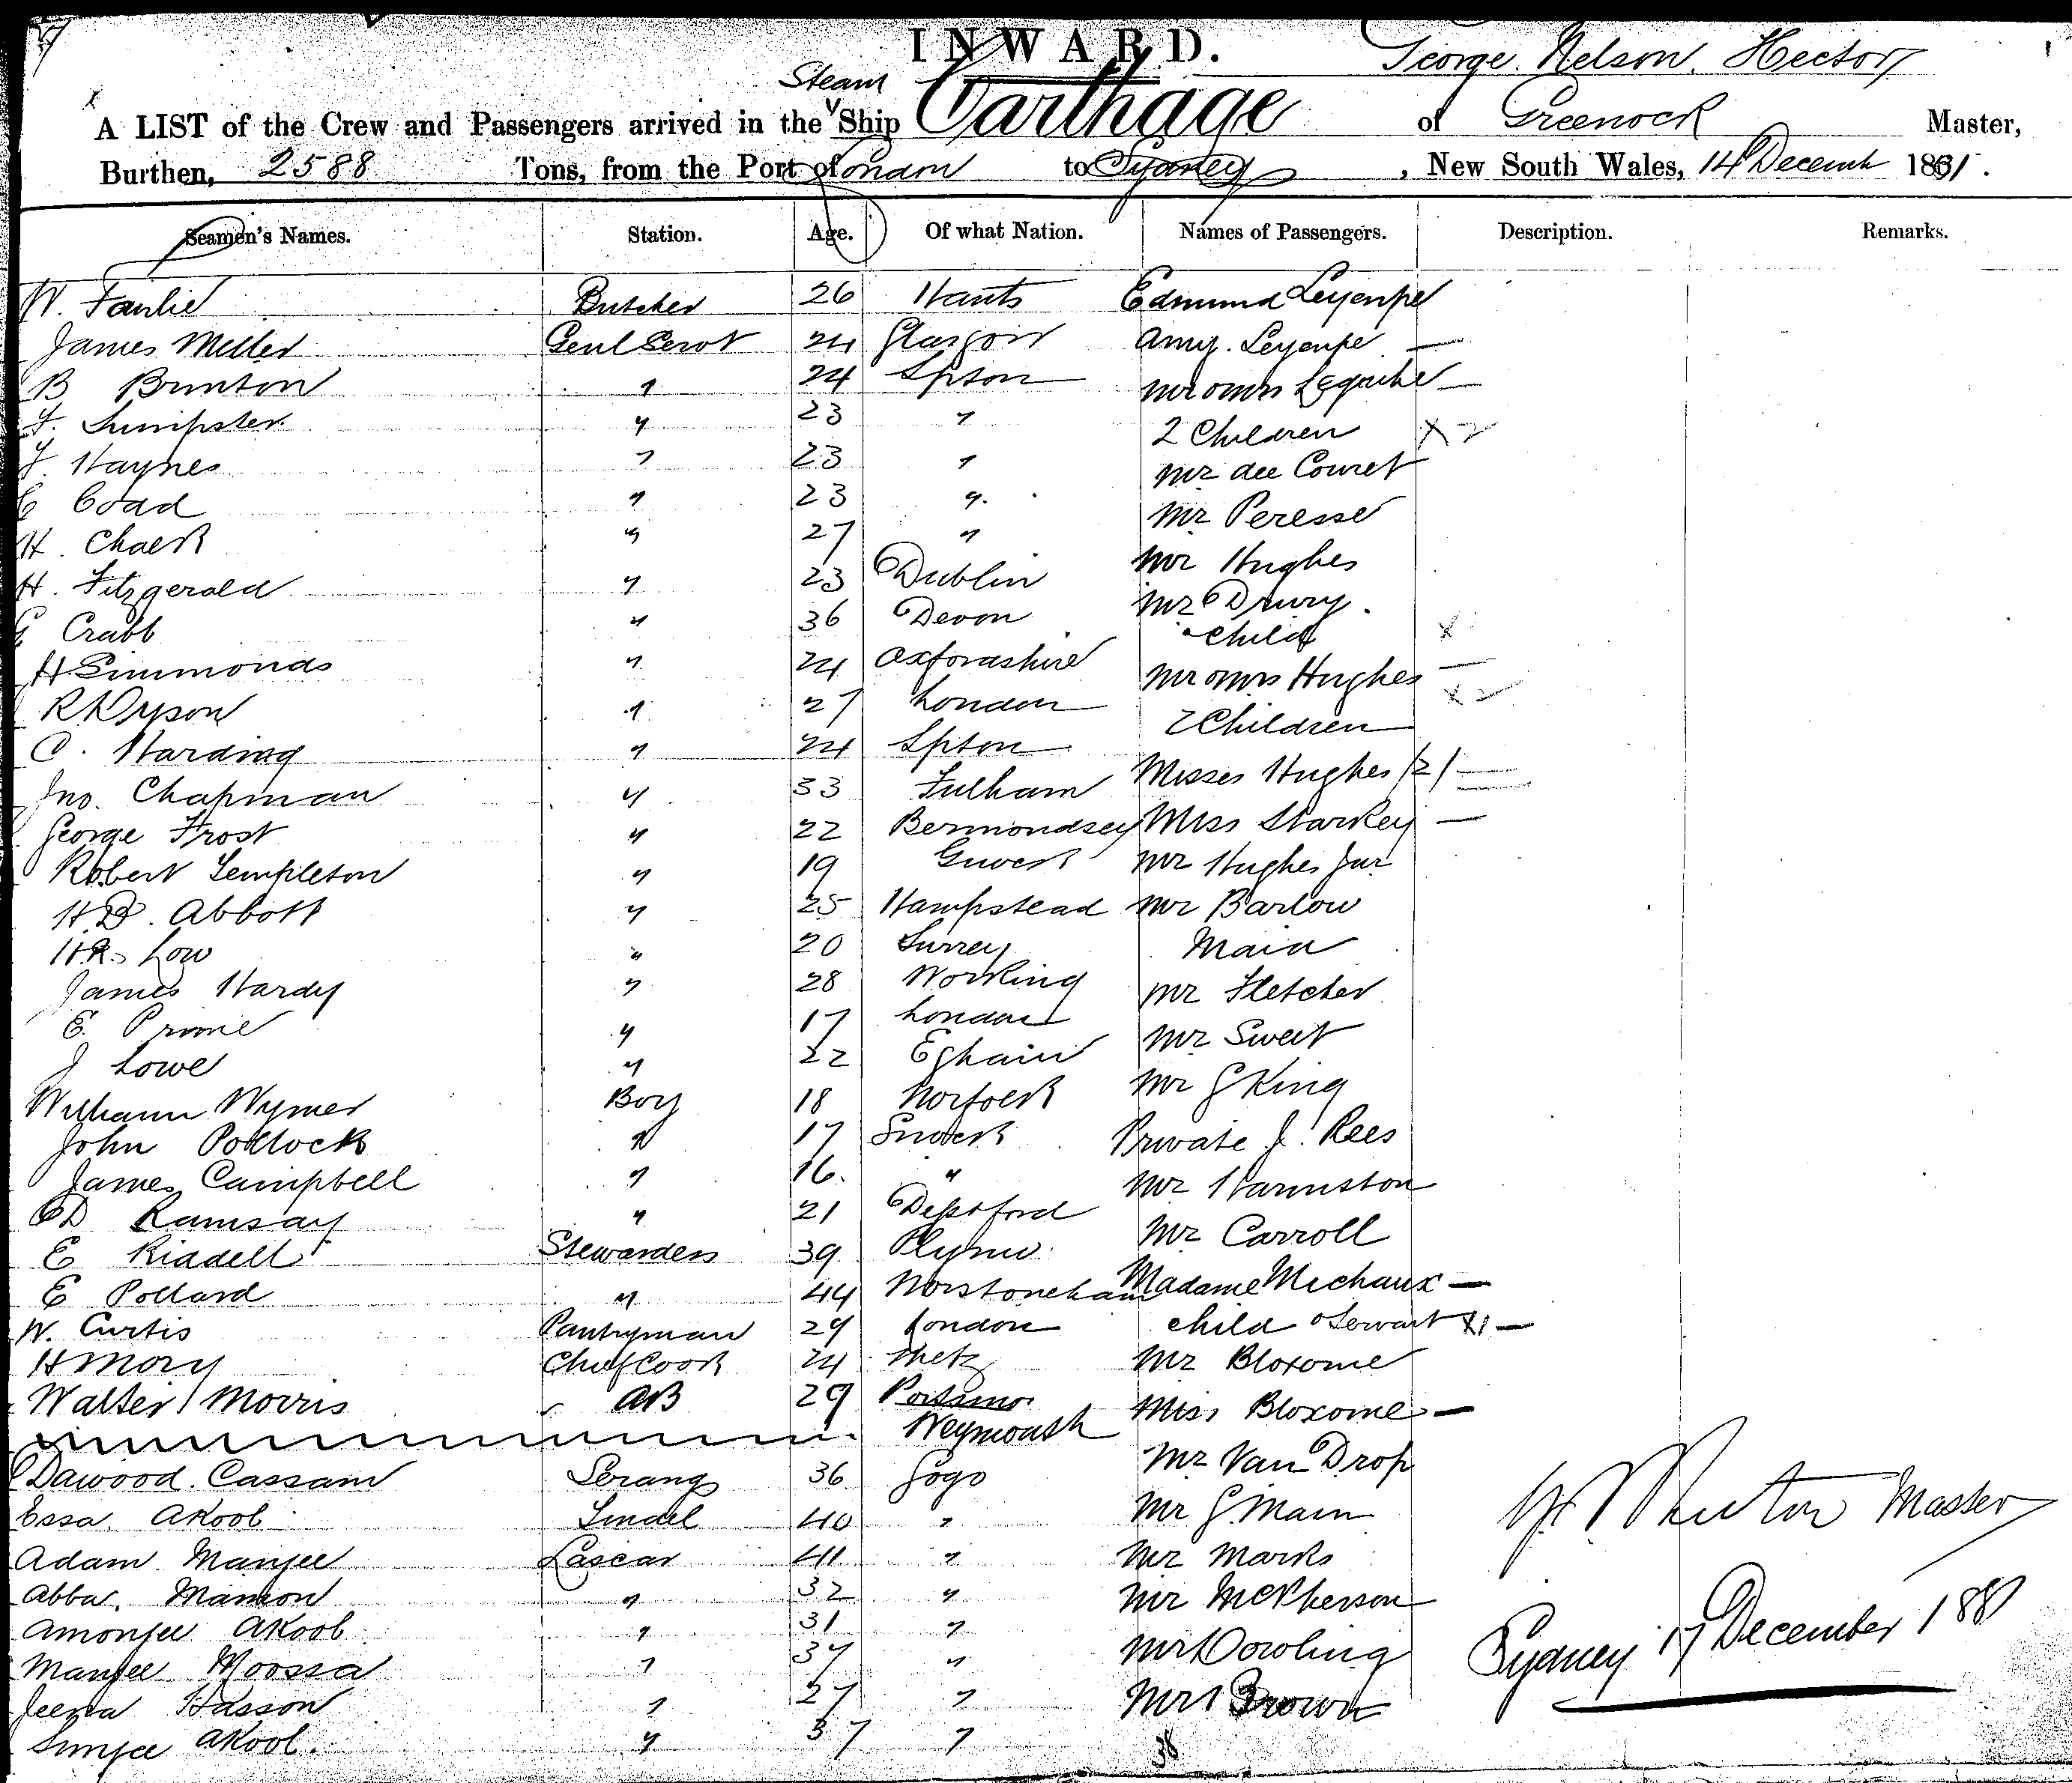 INWARD.
George Nelson Hector
Steam
A LIST of the Crew and Passengers arrived in the Ship Carthage of Greenock Master,
Burthen, 2588 Tons, from the Port of London to Sydney, New South Wales, 14 Decemb 1881.
Seamen's Names. Station. Age. Of what Nation. Names of Passengers. Description. Remarks.
W. Butcher 26 Hants Edmund
James Miller Genl Servt 24 Glasgow Amy
B Brunton " 24 Spton Mr & Mrs
Sumpster " 23 " 2 Children X 2
Haynes " 23 " Mr Couret
Coad " 23 " Mr Peresse
H. " 27 " Mr Hughes
H. Fitzgerald " 23 Dublin Mr Drury
G Crabb " 36 Devon Child X
H Simmonds " 24 Oxfordshire Mr & Mrs Hughes —
R Dyson " 27 London 2 Children X 2
C. Harding " 24 Spton
Jno. Chapman " 33 Fulham Misses Hughes /2/ —
George Frost " 22 Bermondsey Miss Starkey —
Robert Templeton " 19 Mr Hughes Jnr
H.B. Abbott " 25 Hampstead Mr Barlow
H.R. Low " 20 Surrey Maid
James Hardy " 28 Working Mr Fletcher
E. Prime " 17 London Mr Sweet
J Lowe " 22 Egham Mr G King
William Wymer Boy 18 Norfolk Private J. Rees
John Pollock " 17
James Campbell " 16. " Mr Harmston
D Ramsay " 21 Deptford Mr Carroll
E Riddell Stewardess 39 Plymo.
E Pollard " 44 Norstoneham Madame Michaux —
W. Curtis Pantryman 29 London Child & Servant X1 —
H Mory Chief Cook 24 Metz Mr Bloxome
Walter Morris AB 29 Portsmo. Miss Bloxome —
Weymouth
Dawood Cassam Serang 36 Gogo Mr Van Drop
Essa Akoob Tindel 40 " Mr G. Main
Adam Manjee Lascar 41 " Mr Marks
Abba " 32 " Mr McPherson
Amonjee Akoob " 31 " Mr Dowling
Manjee Moossa " 37 "
Jeewa Hasson " 27 " Mrs Brown
Akoob. " 37 "
38
Master
Sydney 17 December 1881